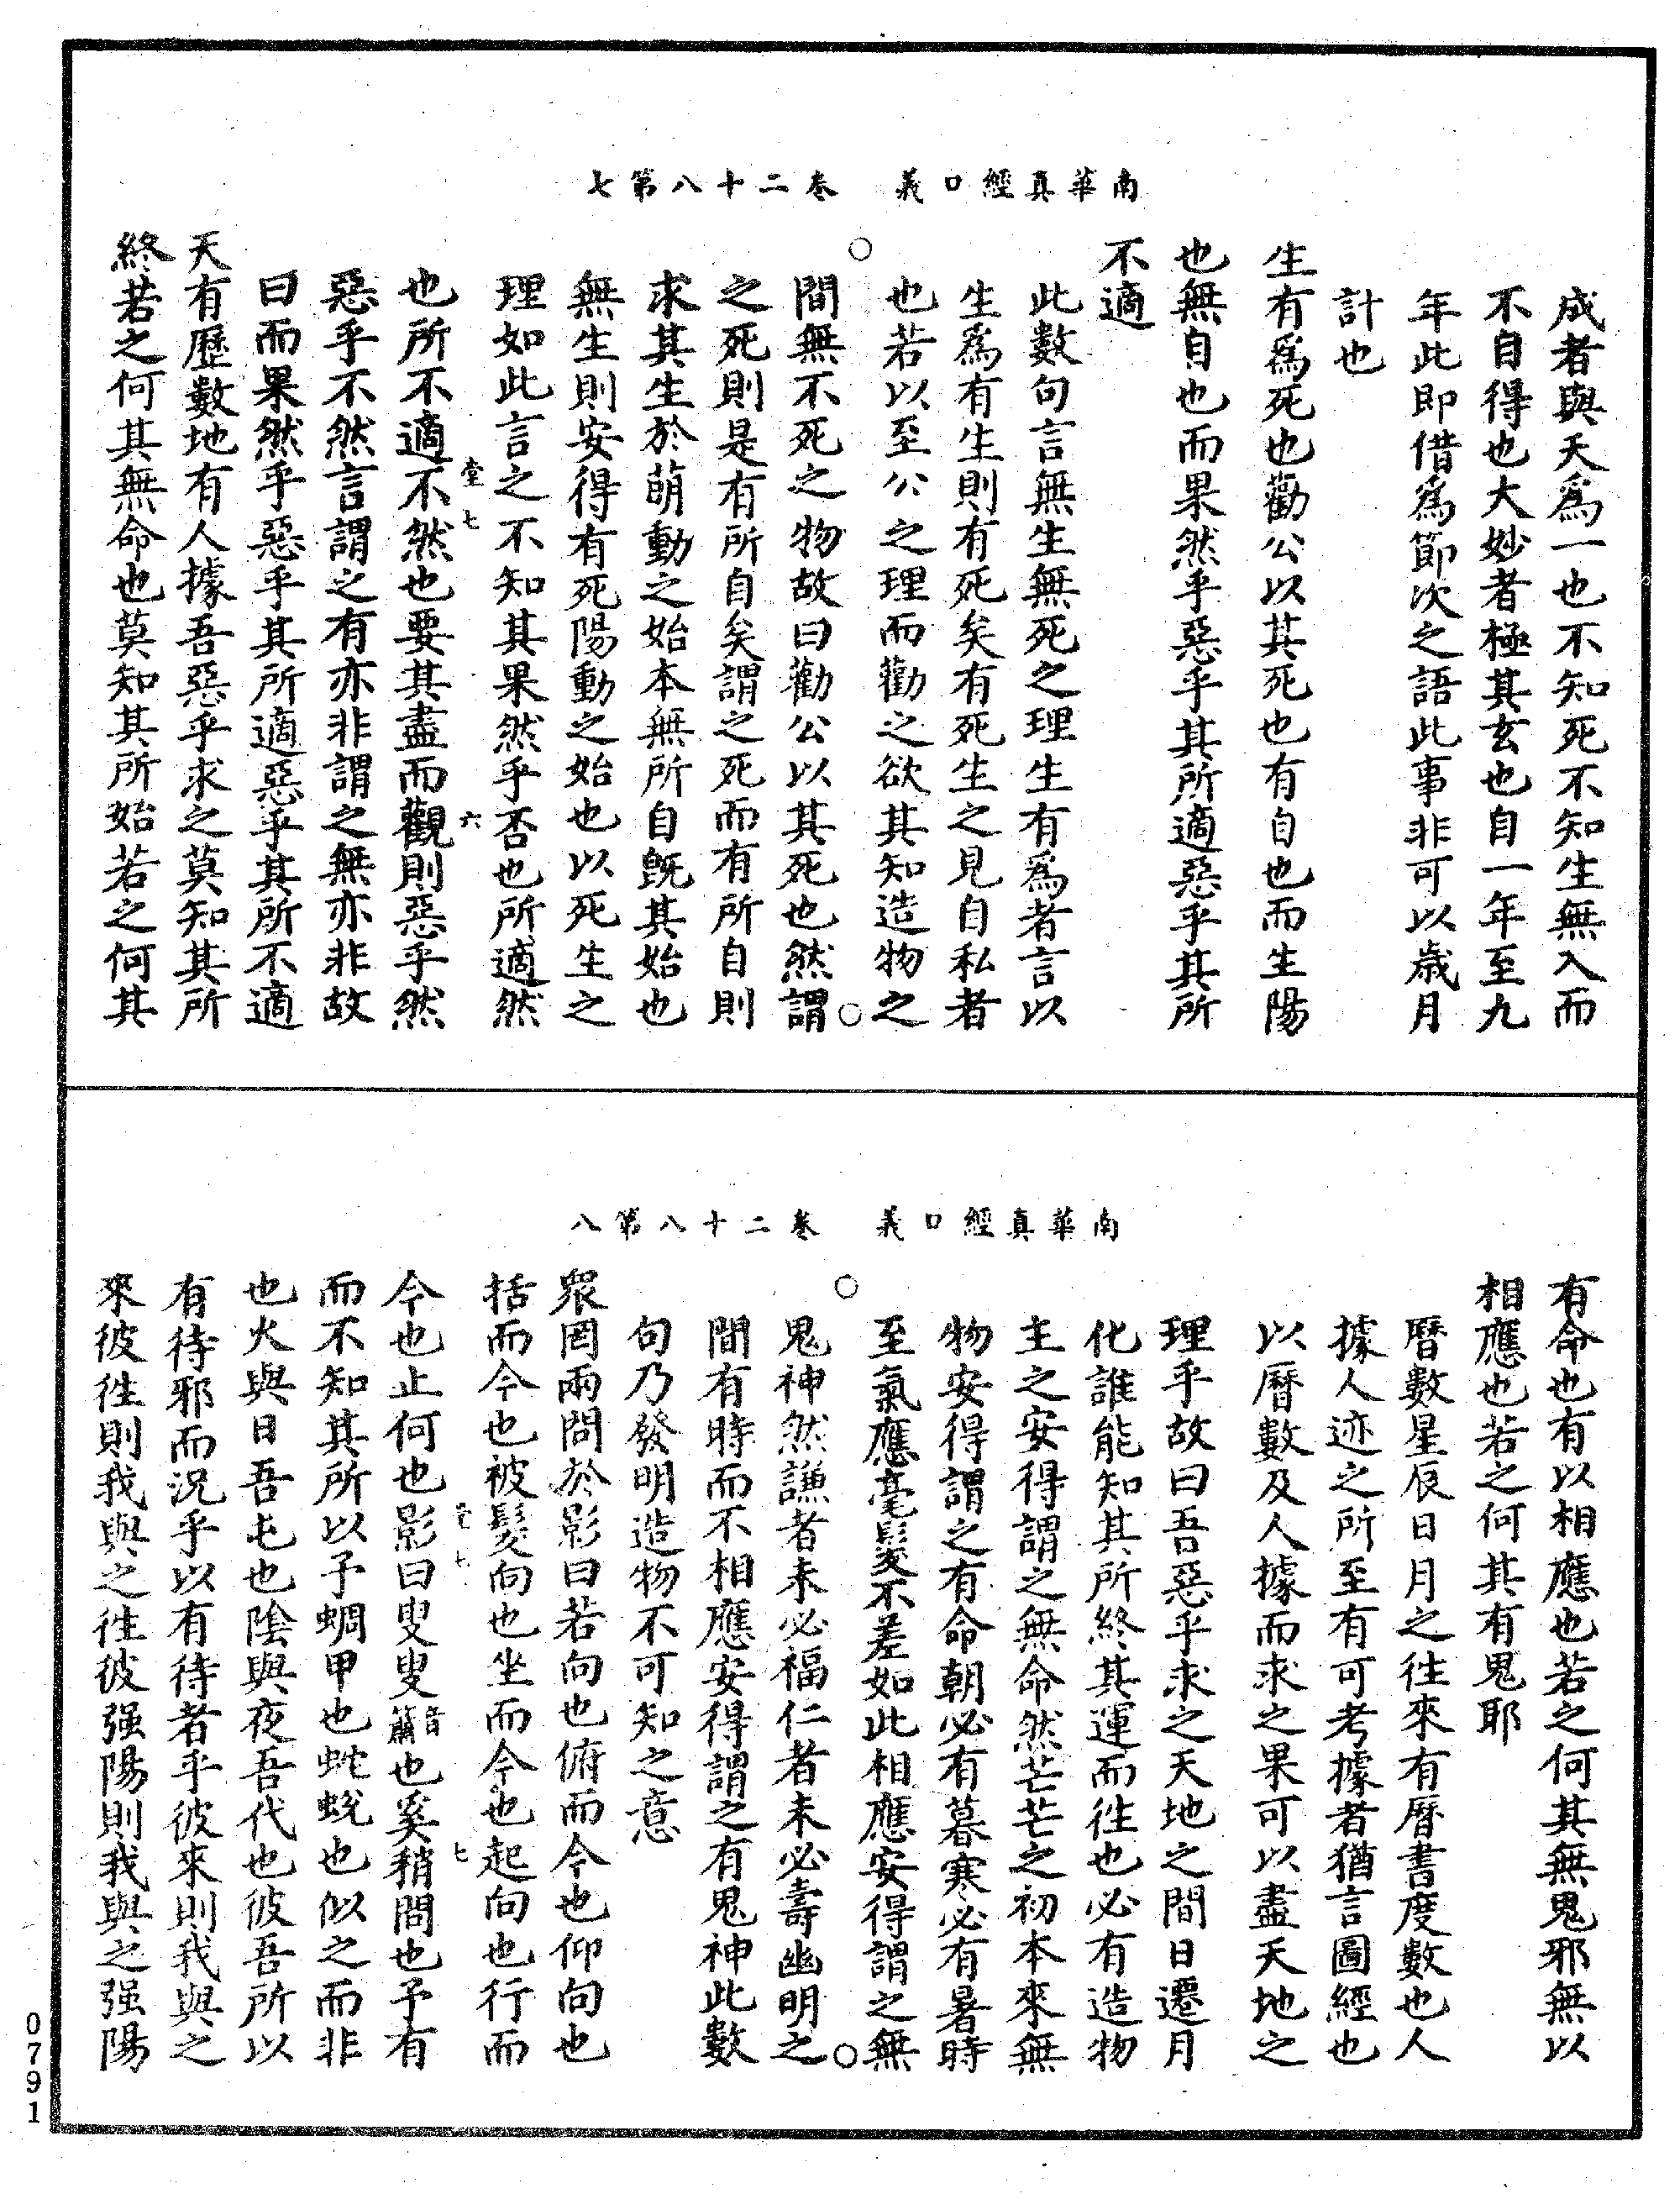 南華真經口義　卷二十八第七
成者與天爲一也不知死不知生無入而
不自得也大妙者極其玄也自一年至九
年此即借爲節次之語此事非可以歲月
計也
生有爲死也勸公以其死也有自也而生陽
也無自也而果然乎惡乎其所適惡乎其所
不適
此數句言無生無死之理生有爲者言以
生爲有生則有死矣有死生之見自私者
也若以至公之理而勸之欲其知造物之
間無不死之物故曰勸公以其死也然謂
之死則是有所自矣謂之死而有所自則
求其生於萌動之始本無所自旣其始也
無生則安得有死陽動之始也以死生之
理如此言之不知其果然乎否也所適然
堂七　六
也所不適不然也要其盡而觀則惡乎然
惡乎不然言謂之有亦非謂之無亦非故
曰而果然乎惡乎其所適惡乎其所不適
天有歷數地有人據吾惡乎求之莫知其所
終若之何其無命也莫知其所始若之何其
南華真經口義　卷二十八第八
有命也有以相應也若之何其無鬼邪無以
相應也若之何其有鬼耶
曆數星辰日月之往來有曆書度數也人
據人迹之所至有可考據者猶言圖經也
以曆數及人據而求之果可以盡天地之
理乎故曰吾惡乎求之天地之間日遷月
化誰能知其所終其運而往也必有造物
主之安得謂之無命然芒芒之初本來無
物安得謂之有命朝必有暮寒必有暑時
至氣應毫髮不差如此相應安得謂之無
鬼神然謙者未必福仁者未必壽幽明之
間有時而不相應安得謂之有鬼神此數
句乃發明造物不可知之意
衆罔兩問於影曰若向也俯而今也仰向也
括而今也被髮向也坐而今也起向也行而
堂七　七
今也止何也影曰叟叟音簫也奚稍問也予有
而不知其所以予蜩甲也蛇蛻也似之而非
也火與日吾屯也陰與夜吾代也彼吾所以
有待邪而況乎以有待者乎彼來則我與之
來彼往則我與之往彼强陽則我與之强陽
0791